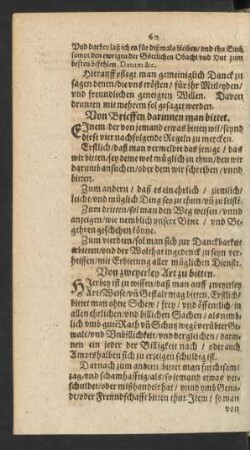 62
Vnd darbey laß ich es für dißmals bleiben / vnd thu Euch
sampt den ewrigen der Göttlichen Obacht vnd Hut zum
besten befehlen. Datum &c.
Hierauff pflegt man gemeiniglich Danck zu
sagen denen / die vns trösten / für ihr Mitleyden /
vnd freundlichen geneigten Willen. Davon
drunten mit mehrem sol gesaget werden.
Von Brieffen darinnen man bittet.
EInem / der von jemand etwas bitten wil / seynd
diese vier nachfolgende Regeln zu mercken.
Erstlich / daß man vermeldet das jenige / das
wir bitten / sey deme wol müglich zu thun / den wir
darumb ansuchen / oder dem wir schreiben / vnnd
bitten.
Zum andern / daß es ein ehrlich / ziemlich /
leicht / vnd müglich Ding sey zu thun / vñ zu leistẽ.
Zum dritten / sol man den Weg weisen / vnnd
anzeigen / wie nemblich vnsere Bitte / vnd Be-
gehren geschehen könne.
Zum vierdten / sol man sich zur Danckbarkeit
erbieten / vnd der Wolthat in gedenck zu seyn ver-
heissen / mit Erbietung aller müglichen Dienste.
Von zweyerley Art zu bitten.
HIerbey ist zu wissen / daß man auff zweyerley
Art / Weise / vñ Gestalt mag bitten. Erstlich /
bittet man ohne Schew / frey / vnd öffentlich in
allen ehrlichen / vnd billichen Sachen / als nemb-
lich vmb gute Rath vñ Schutz wegẽ vbẽrter Ge-
walt / vnd Vnbillichkeit / vnd dergleichen / darin-
nen ein jeder der Billigkeit nach / oder auch
Amptshalben sich zu erzeigen schuldig ist.
Darnach zum andern / bittet man furchtsam /
zag / vnd schamhafftig / als / so jemand etwas ver-
schuldet / oder mißhandelt hat / vnnd vmb Gena-
de / oder Freundschafft bitten thut. Item / so man
von